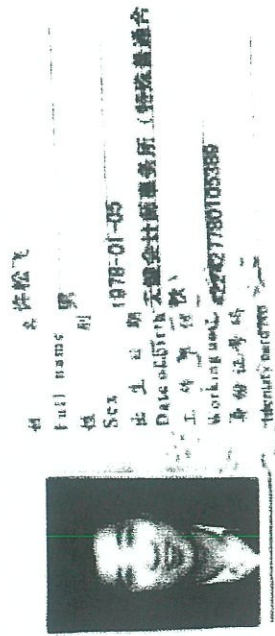 姓 名 许松飞
Full name
性 别 男
Sex
出 生 日 期 1978-01-05
Date of birth
工 作 单 位 天健会计师事务所(特殊普通合
Working unit 伙)
身 份 证 号 码 422427780105389
Identity card No